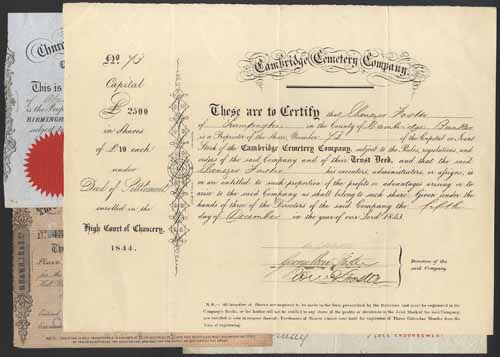 Church
This is
BIRMINGHAM
No. 73
Capital
£ 2500
in Shares
of
£10 each
under
Deed of Settlement
enrolled in the
High Court of Chancery,
1844.
Cambridge Cemetery Company.
These are to Certify that Ebenezer Foster
of Trumpington in the County of Cambridge Banker
is a Proprietor of the Share, Number 73 of the Capital or Joint
Stock of the Cambridge Cemetery Company, subject to the Rules, regulations, and
orders of the said Company and of their Trust Deed, and that the said
Ebenezer Foster his executors, administrators, or assigns, is
or are entitled to such proportion of the profits or advantages arising or to
arise to the said Company as shall belong to such share: Given under the
hands of three of the Directors of the said Company the fifth
day of December in the year of our Lord 1843
Foster
Directors of the
said Company.
N.B.—All transfers of Shares are required to be made in the form prescribed by the Directors and must be registered in the
Company's Books, or the holder will not be entitled to any share of the profits or dividends in the Joint Stock of the said Company,
ENDORSEMENT